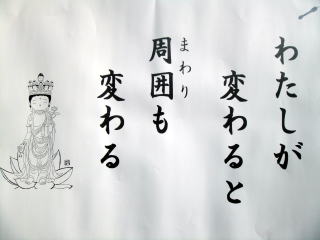 わたしが
変わると
周囲も
まわり
変わる